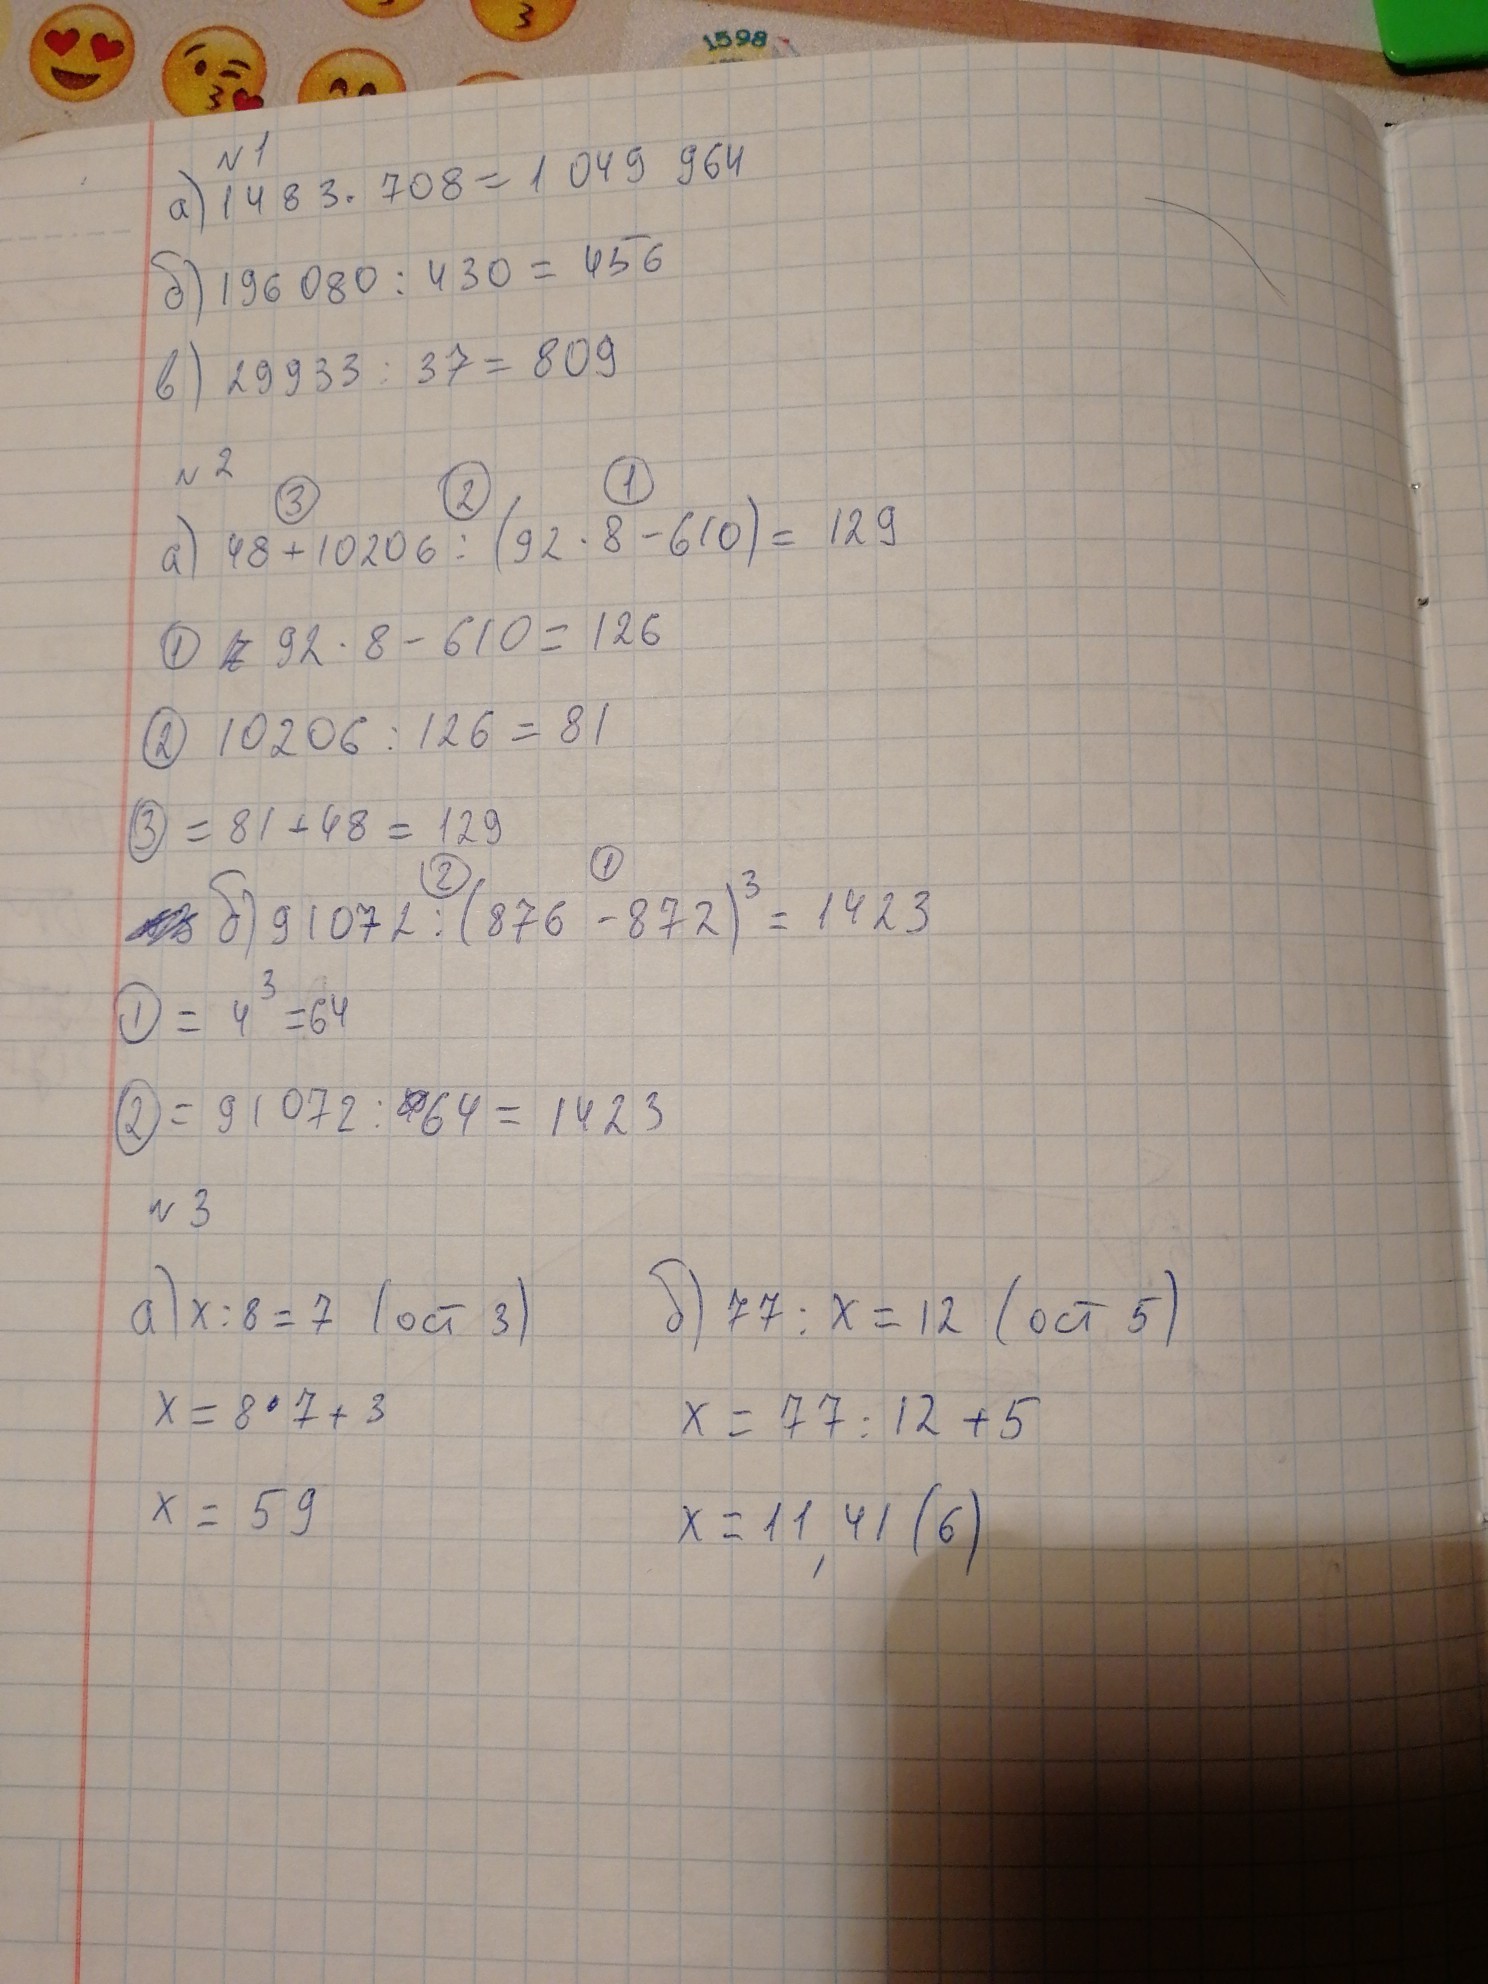 1598
№1
а) 1483 · 708 = 1 049 964
б) 196 080 : 430 = 456
в) 29933 : 37 = 809
№2
③ ② ①
а) 48 + 10206 : (92 · 8 - 610) = 129
① 92 · 8 - 610 = 126
② 10206 : 126 = 81
③ = 81 + 48 = 129
② ①
б) 91072 : (876 - 872)³ = 1423
① = 4³ = 64
② = 91072 : 64 = 1423
№3
а) x : 8 = 7 (ост 3) б) 77 : x = 12 (ост 5)
x = 8 · 7 + 3 x = 77 : 12 + 5
x = 59 x = 11,41(6)